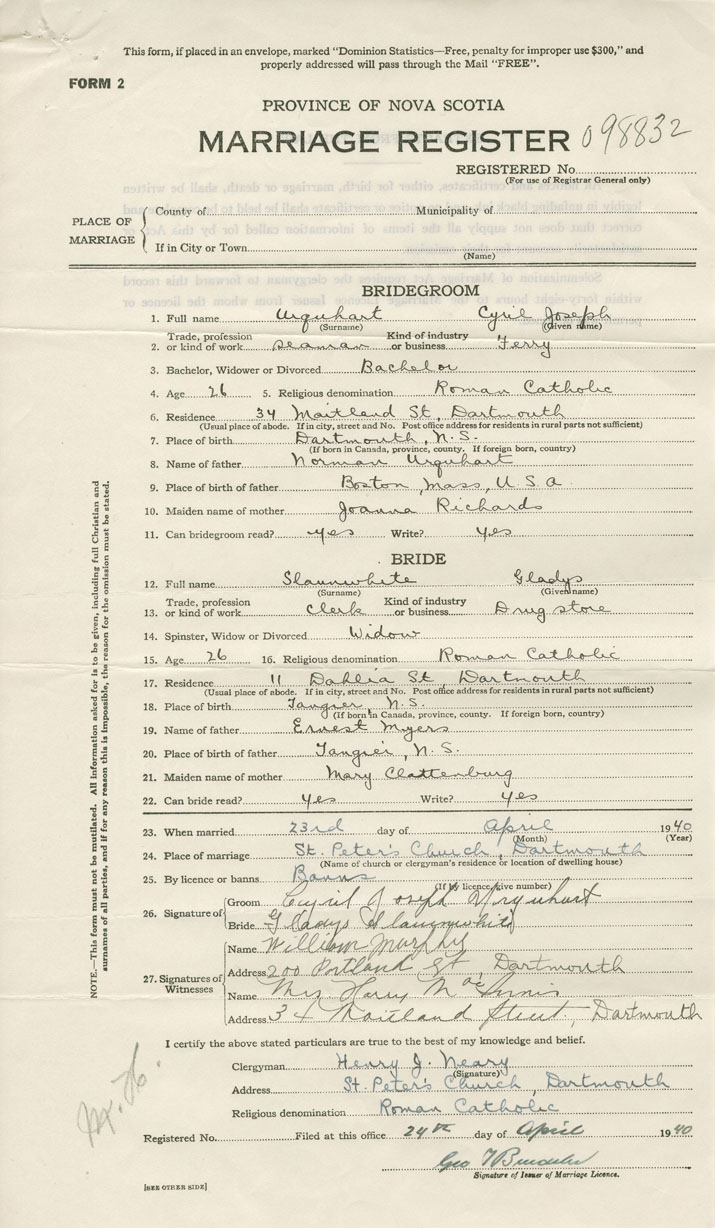 This form, if placed in an envelope, marked "Dominion Statistics—Free, penalty for improper use $300," and
properly addressed will pass through the Mail "FREE".
FORM 2
PROVINCE OF NOVA SCOTIA
MARRIAGE REGISTER 098832
REGISTERED No.
(For use of Registrar General only)
PLACE OF MARRIAGE
County of Municipality of
If in City or Town
(Name)
BRIDEGROOM
1. Full name Urquhart Cyril Joseph
(Surname) (Given name)
2. Trade, profession or kind of work Seaman Kind of industry or business Ferry
3. Bachelor, Widower or Divorced Bachelor
4. Age 26 5. Religious denomination Roman Catholic
6. Residence 34 Maitland St, Dartmouth
(Usual place of abode. If in city, street and No. Post office address for residents in rural parts not sufficient)
7. Place of birth Dartmouth, N.S.
(If born in Canada, province, county. If foreign born, country)
8. Name of father Norman Urquhart
9. Place of birth of father Boston, Mass, U.S.A.
10. Maiden name of mother Joanna Richards
11. Can bridegroom read? yes Write? yes
BRIDE
12. Full name Slaunwhite Gladys
(Surname) (Given name)
13. Trade, profession or kind of work Clerk Kind of industry or business Drug store
14. Spinster, Widow or Divorced Widow
15. Age 26 16. Religious denomination Roman Catholic
17. Residence 11 Dahlia St, Dartmouth
(Usual place of abode. If in city, street and No. Post office address for residents in rural parts not sufficient)
18. Place of birth Tangier, N.S.
(If born in Canada, province, county. If foreign born, country)
19. Name of father Ernest Myers
20. Place of birth of father Tangier, N.S.
21. Maiden name of mother Mary Clattenburg
22. Can bride read? yes Write? yes
23. When married 23rd day of April 1940
(Month) (Year)
24. Place of marriage St. Peter's Church, Dartmouth
(Name of church or clergyman's residence or location of dwelling house)
25. By licence or banns Banns
(If by licence, give number)
26. Signature of
Groom Cyril Joseph Urquhart
Bride Gladys Slaunwhite
27. Signatures of Witnesses
Name William Murphy
Address 200 Portland St, Dartmouth
Name Mrs. Harry MacInnis
Address 34 Maitland Street, Dartmouth
I certify the above stated particulars are true to the best of my knowledge and belief.
Clergyman Henry J. Neary
(Signature)
Address St. Peter's Church, Dartmouth
Religious denomination Roman Catholic
Registered No. Filed at this office 24th day of April 1940
Geo
Signature of Issuer of Marriage Licence.
[SEE OTHER SIDE]
NOTE.—This form must not be mutilated. All information asked for is to be given, including full Christian and
surnames of all parties, and if for any reason this is impossible, the reason for the omission must be stated.